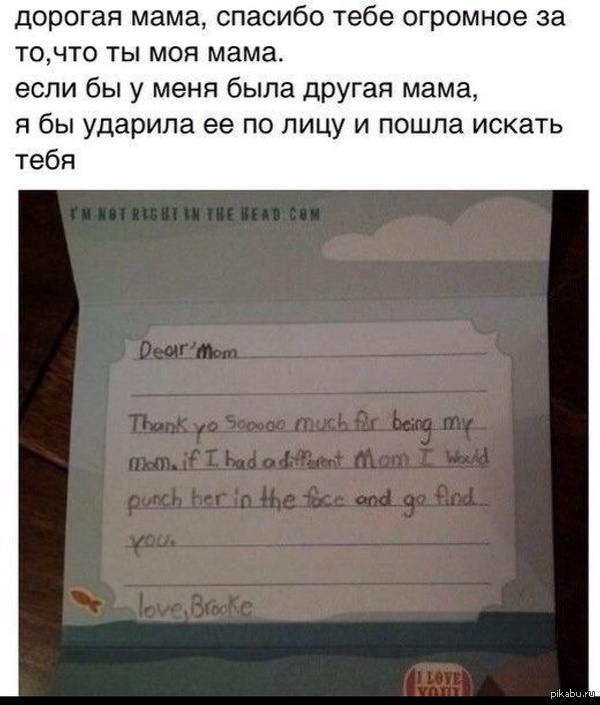 дорогая мама, спасибо тебе огромное за
то,что ты моя мама.
если бы у меня была другая мама,
я бы ударила ее по лицу и пошла искать
тебя
I'M NOT RIGHT IN THE HEAD.COM
Dear Mom
Thank yo Sooooo much for being my
mom. if I had a different Mom I would
punch her in the face and go find
you.
love, Brooke
I LOVE
YOU!
pikabu.ru